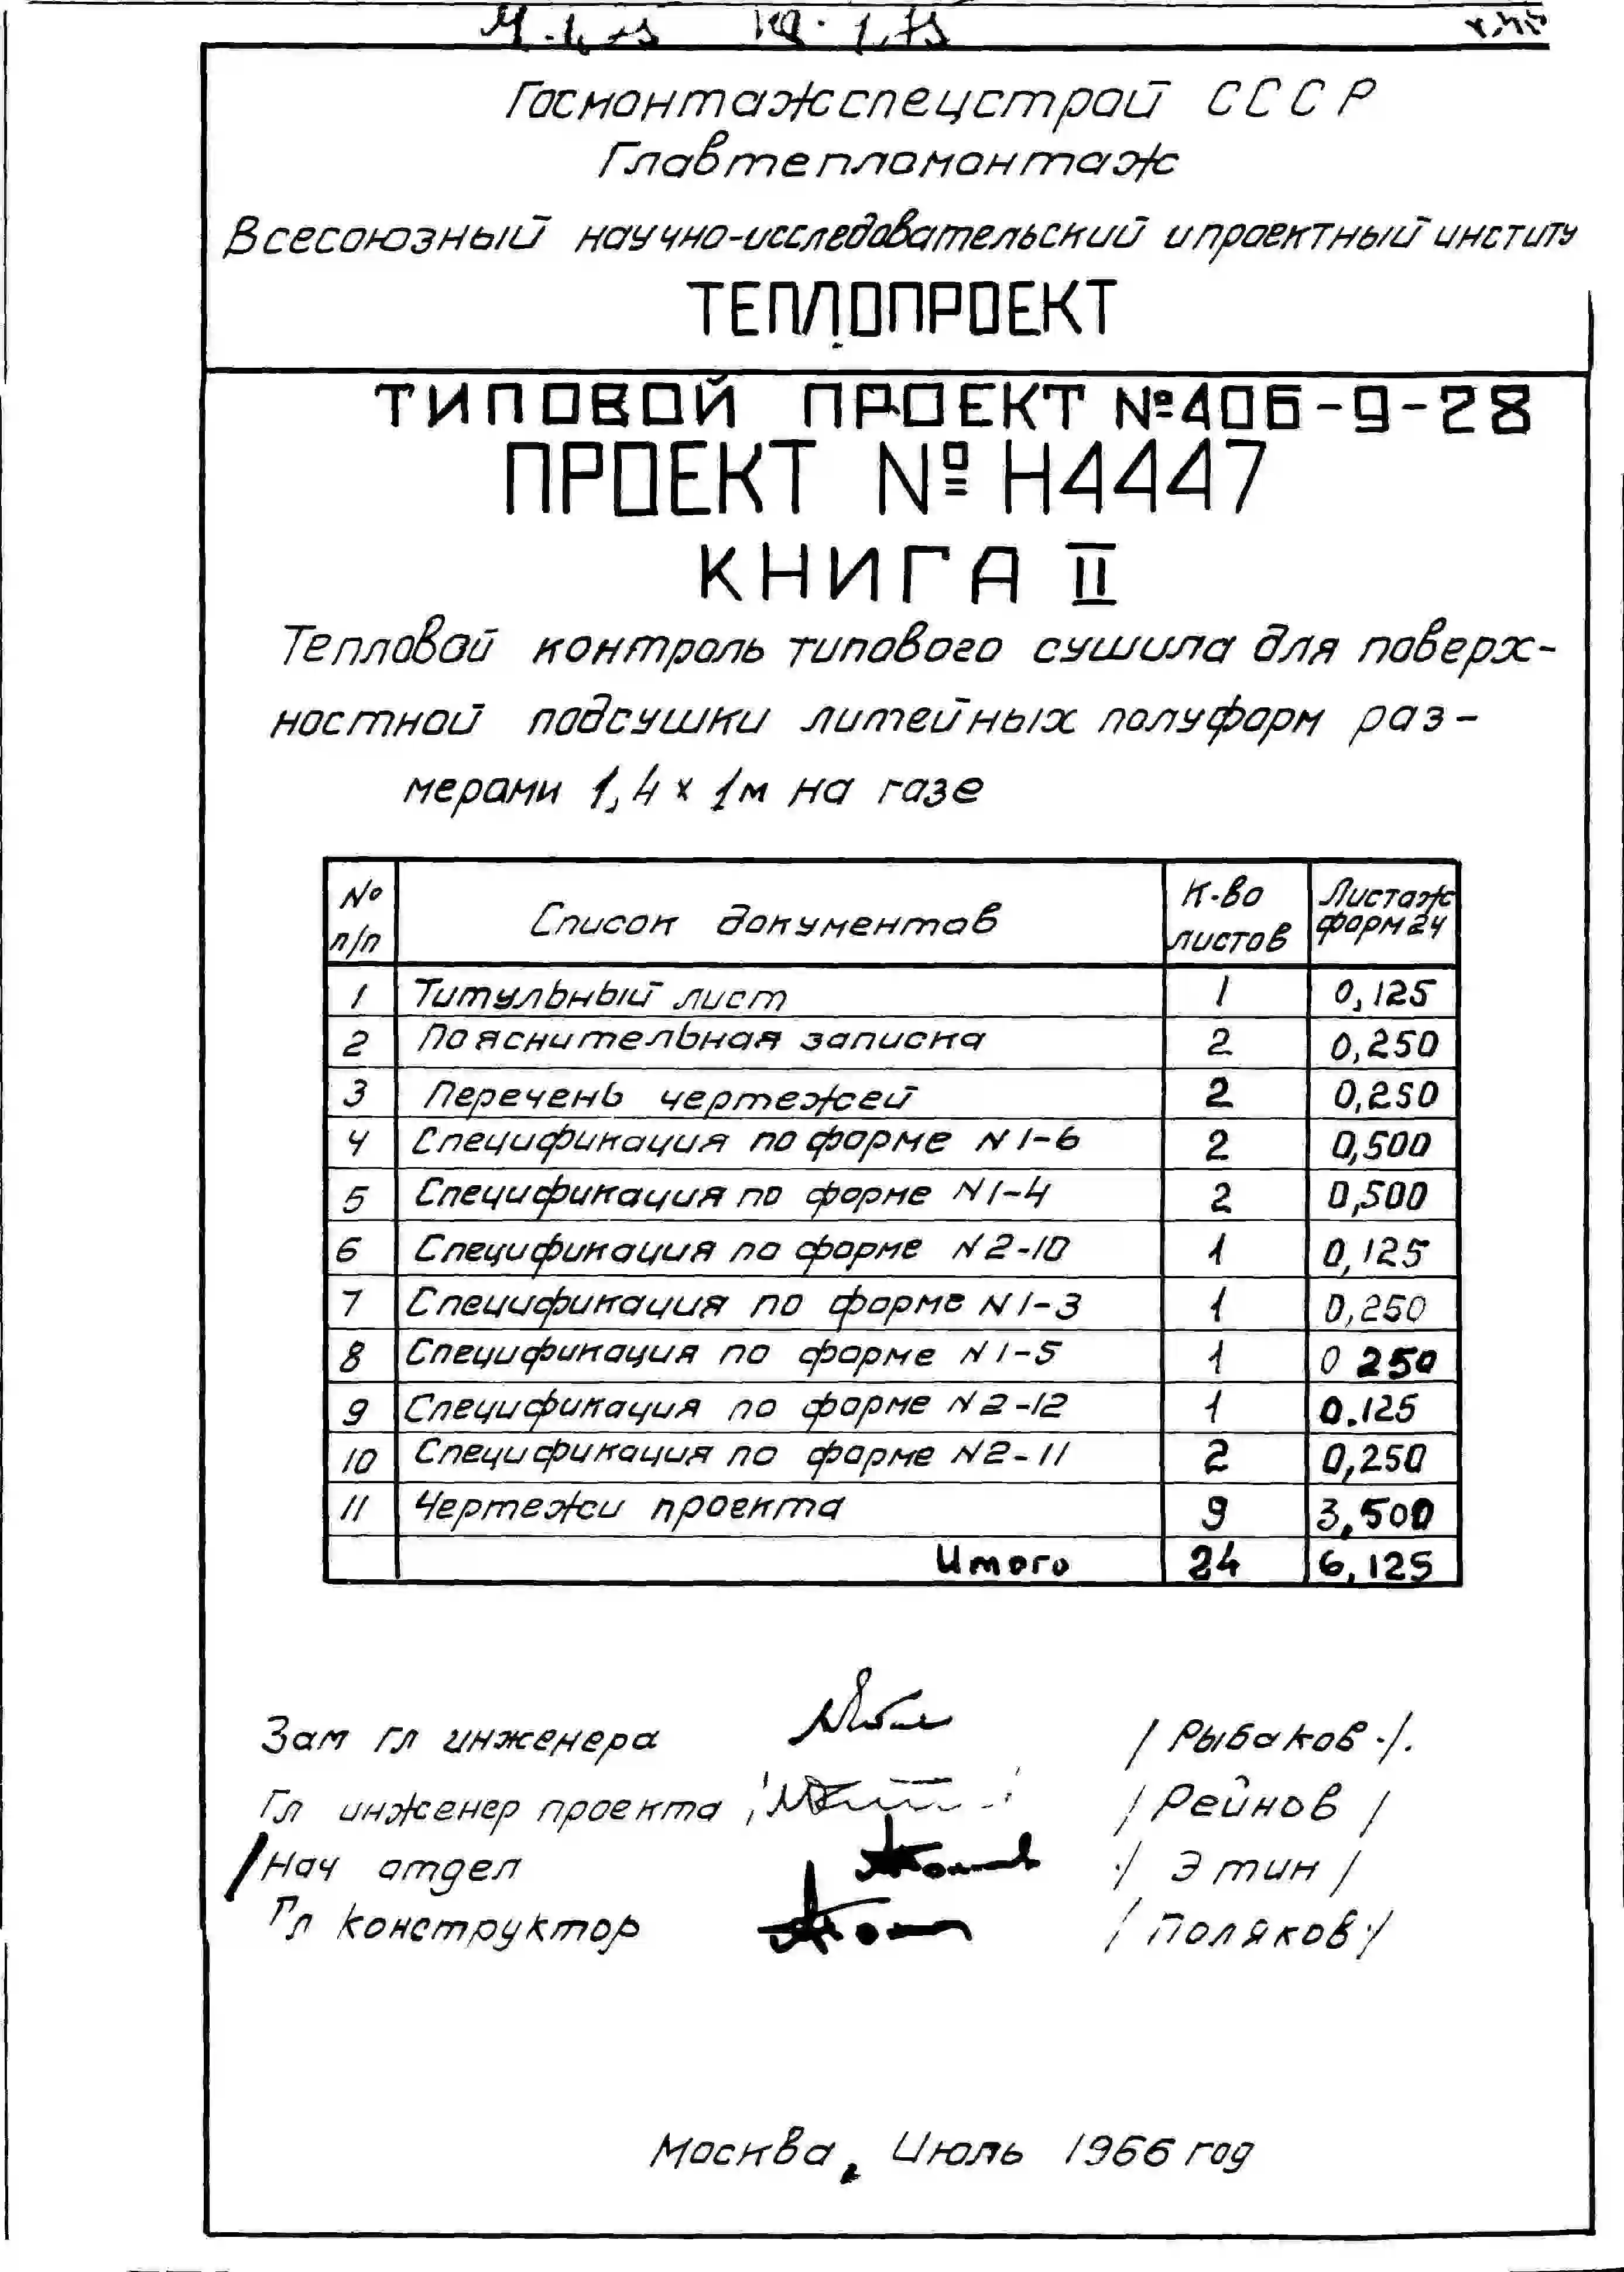 Госмонтажспецстрой СССР
Главтепломонтаж
Всесоюзный научно-исследовательский и проектный институ
ТЕПЛОПРОЕКТ
ТИПОВОЙ ПРОЕКТ №406-9-28
ПРОЕКТ № Н4447
КНИГА II
Тепловой контроль типового сушила для поверх-
ностной подсушки литейных полуформ раз-
мерами 1,4 х 1м на газе
№ п/п Список документов К-во листов Листаж форм 24
1 Титульный лист 1 0,125
2 Пояснительная записка 2 0,250
3 Перечень чертежей 2 0,250
4 Спецификация по форме N 1-6 2 0,500
5 Спецификация по форме N 1-4 2 0,500
6 Спецификация по форме N 2-10 1 0,125
7 Спецификация по форме N 1-3 1 0,250
8 Спецификация по форме N 1-5 1 0 250
9 Спецификация по форме N 2-12 1 0.125
10 Спецификация по форме N 2-11 2 0,250
11 Чертежи проекта 9 3,500
Итого 24 6,125
Зам гл инженера / Рыбаков ./.
Гл инженер проекта / Рейнов /
/ Нач отдел ./ Этин /
Гл конструктор / Поляков /
Москва, Июль 1966 год